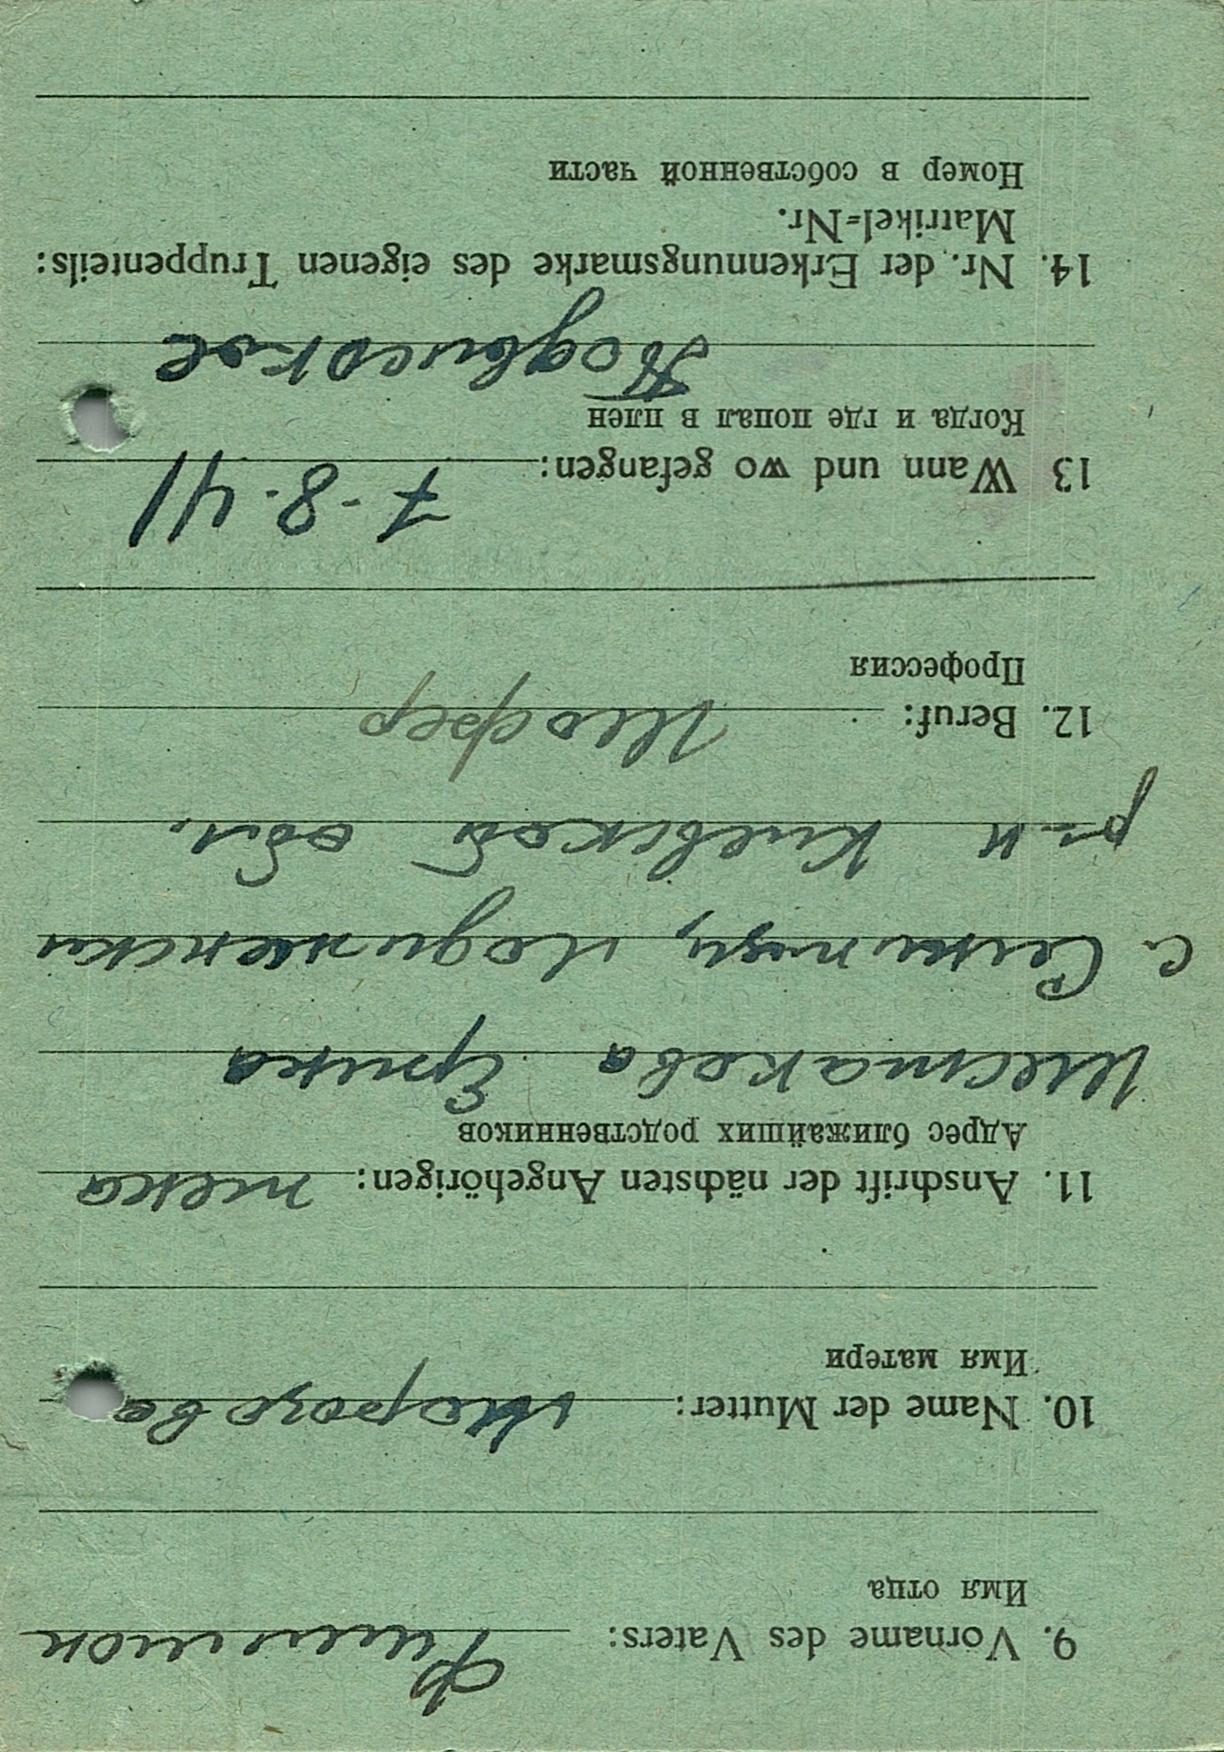 9. Vorname des Vaters: Филимон
Имя отца
10. Name der Mutter: Морозова
Имя матери
11. Anschrift der nächsten Angehörigen: жена
Адрес ближайших родственников
Шестакова
с. Ладиженски
р-н Киевской обл.
12. Beruf: Шофер
Профессия
13 Wann und wo gefangen: 7-8-41
Когда и где попал в плен
Подвисокое
14. Nr. der Erkennungsmarke des eigenen Truppenteils:
Matrikel-Nr.
Номер в собственной части